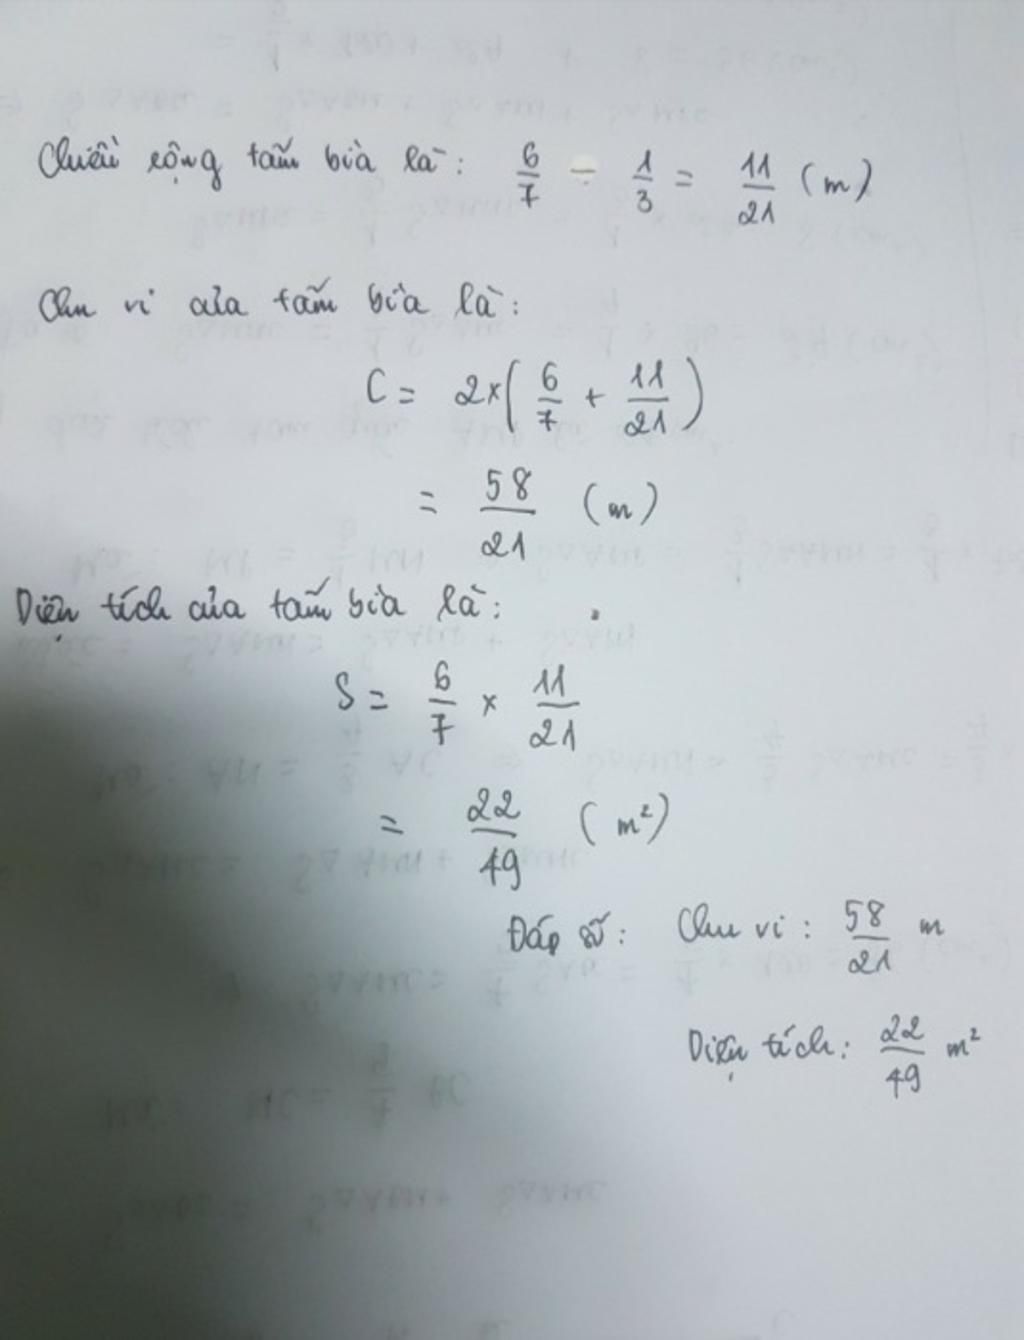 Chiều rộng tấm bìa là: 6/7 - 1/3 = 11/21 (m)
Chu vi của tấm bìa là:
C = 2×(6/7 + 11/21)
= 58/21 (m)
Diện tích của tấm bìa là:
S = 6/7 × 11/21
= 22/49 (m²)
Đáp số: Chu vi: 58/21 m
Diện tích: 22/49 m²